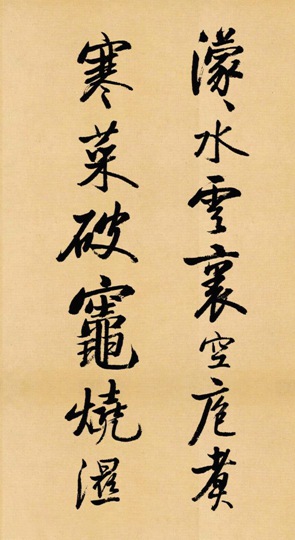 濛〻水雲裏空庖煮
寒菜破竈燒濕